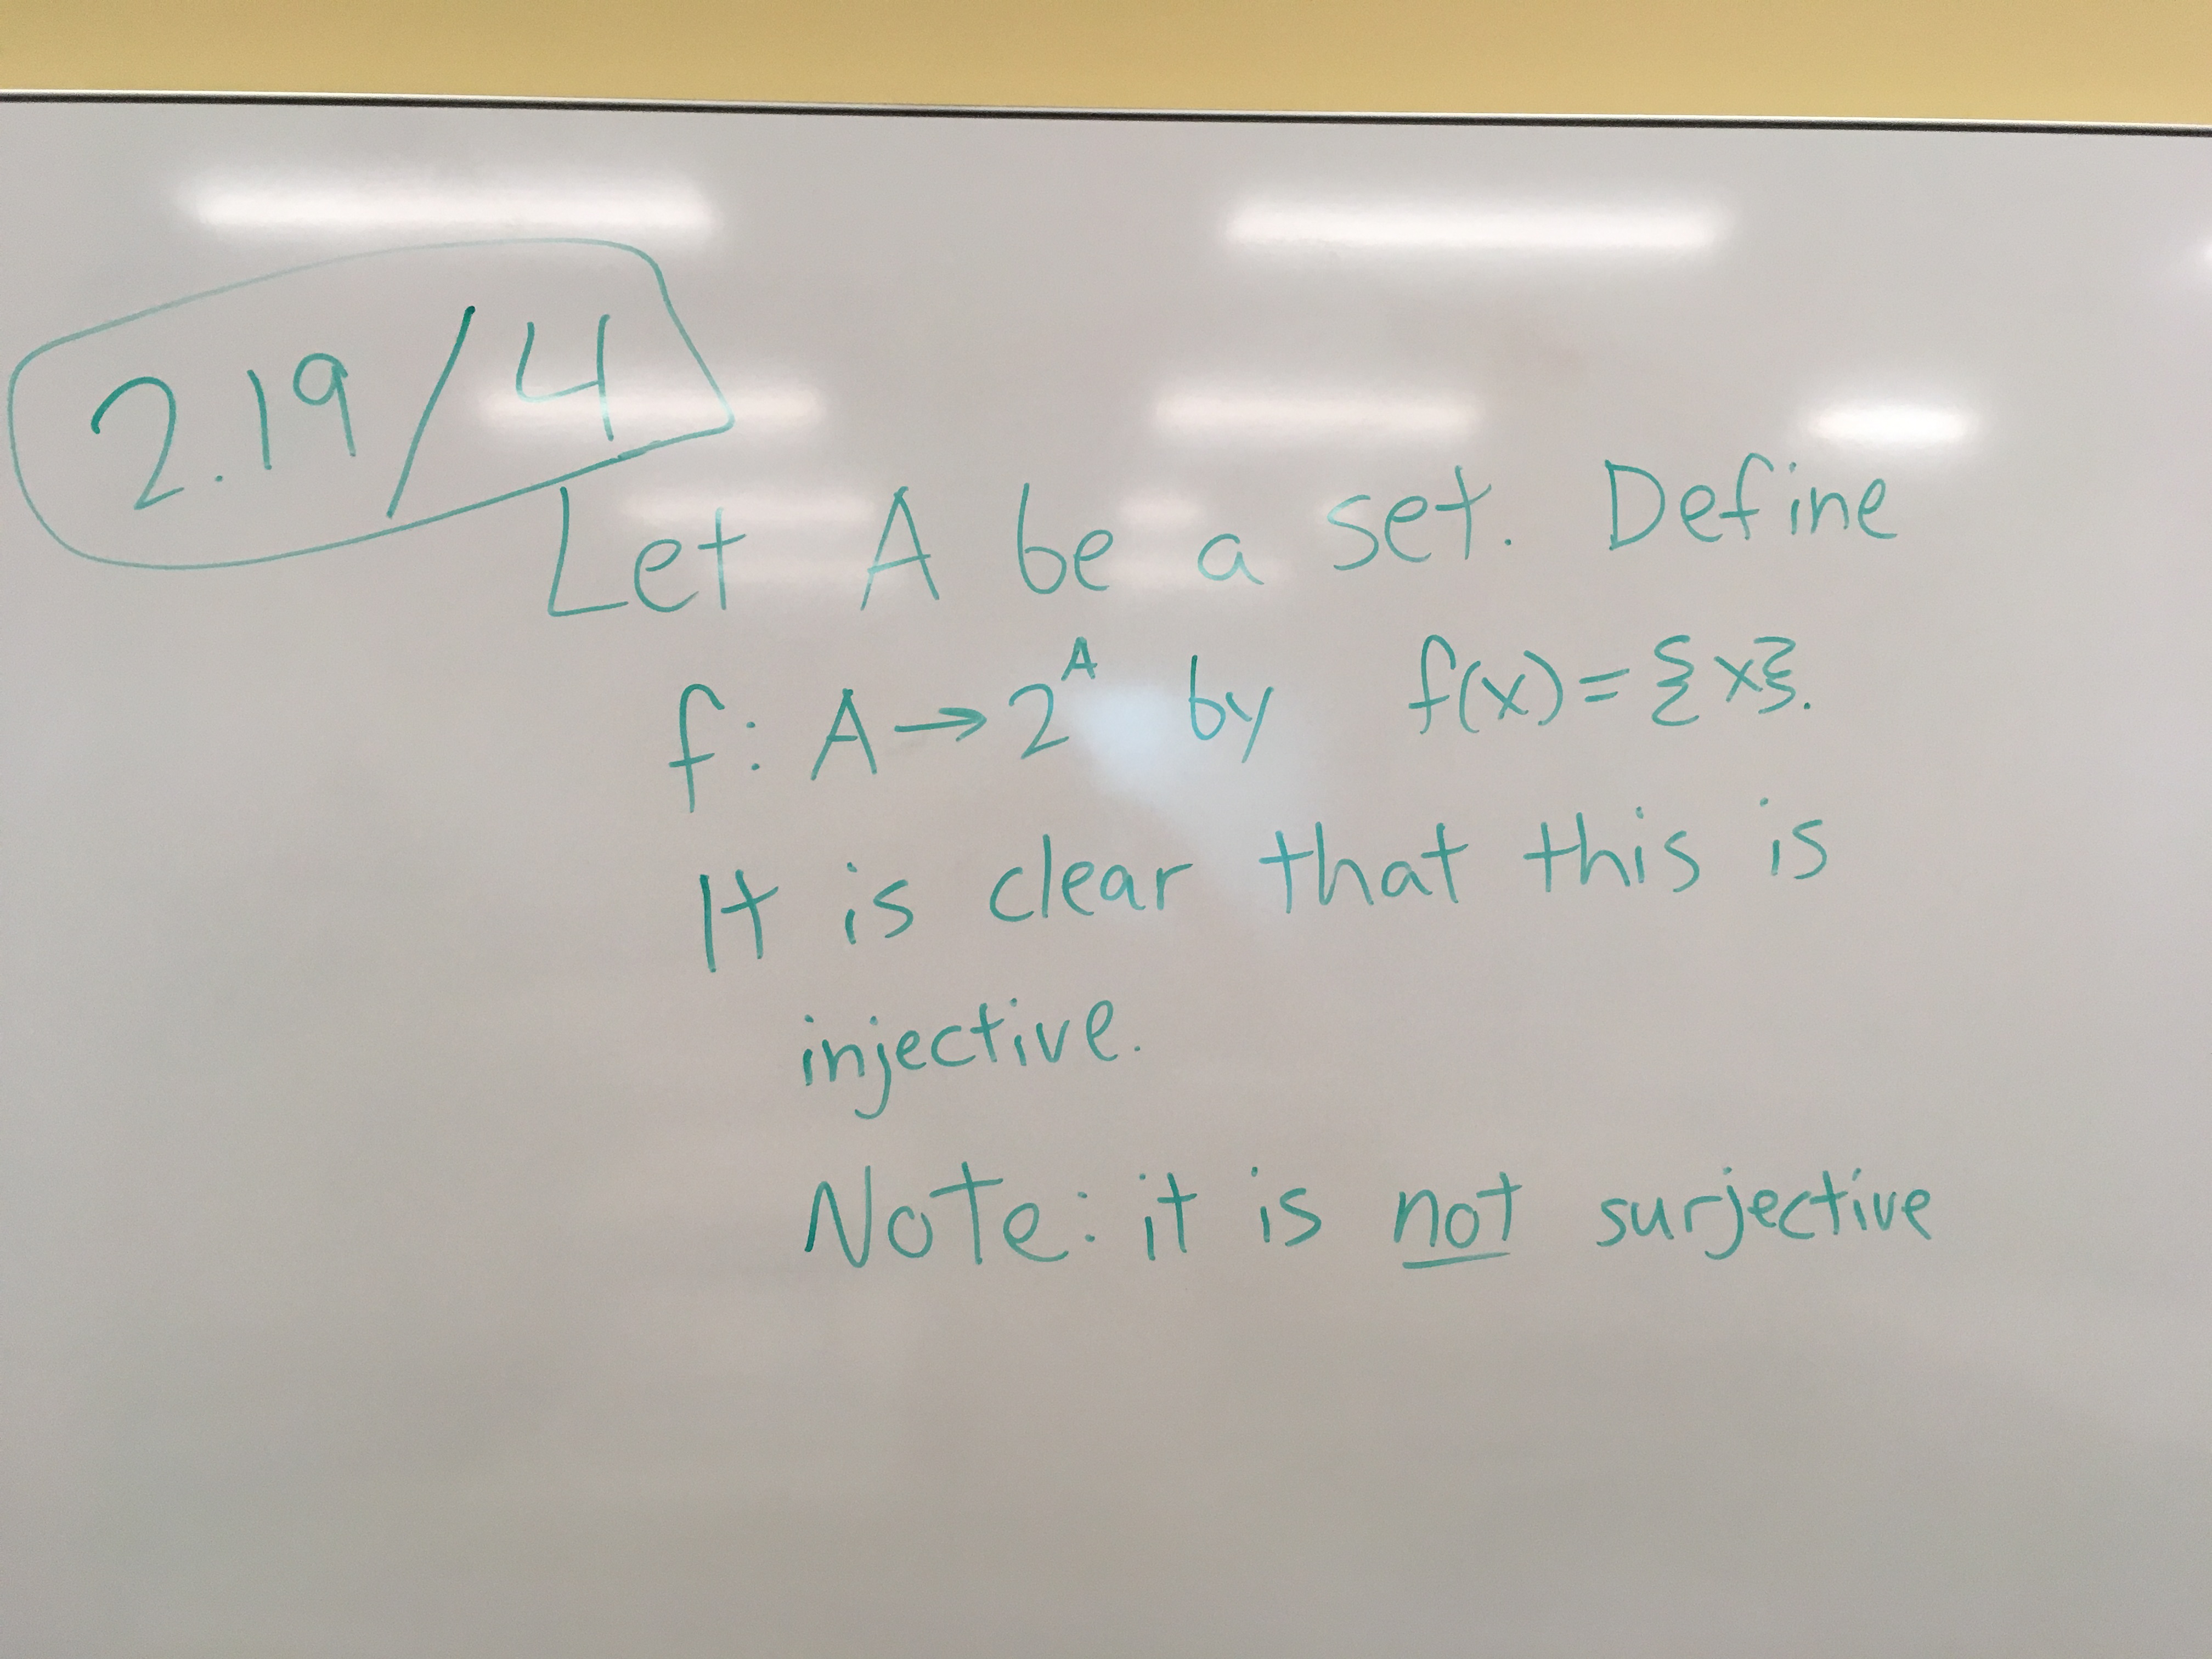 2.19/4
Let A be a set. Define
f: A → 2^A by f(x) = {x}.
It is clear that this is
injective.
Note: it is not surjective